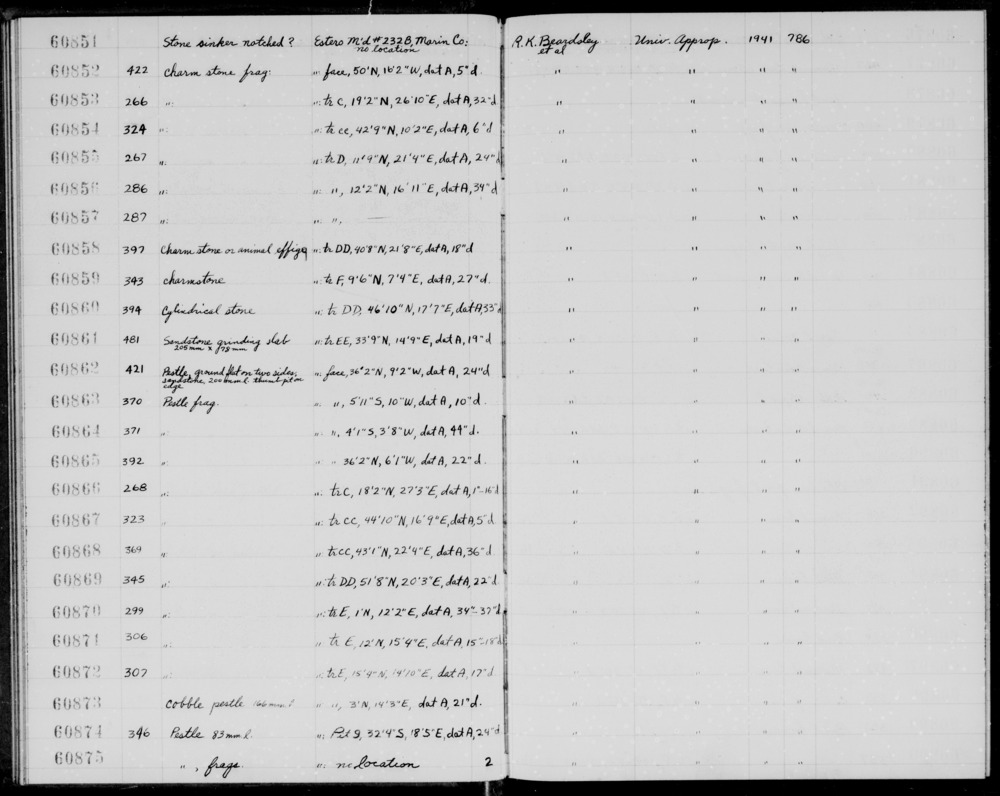 60851 Stone sinker notched? Estero M'd #232B, Marin Co: no location R.K. Beardsley et al Univ. Approp. 1941 786
60852 422 charm stone frag: ": face, 50'N, 16'2"W, dat A, 5"d. " " " "
60853 266 ": ": tr C, 19'2"N, 26'10"E, dat A, 32"d " " " "
60854 324 ": ": tr CC, 42'9"N, 10'2"E, dat A, 6"d " " " "
60855 267 ": ": tr D, 11'9"N, 21'4"E, dat A, 24"d " " " "
60856 286 ": ": ", 12'2"N, 16'11"E, dat A, 34"d " " " "
60857 287 ": ": ", — " " " "
60858 397 Charm stone or animal effigy ": tr DD, 40'8"N, 21'8"E, dat A, 18"d " " " "
60859 343 charmstone ": tr F, 9'6"N, 7'4"E, dat A, 27"d. " " " "
60860 394 Cylindrical stone ": tr DD, 46'10"N, 17'7"E, dat A, 33"d " " " "
60861 481 Sandstone grinding slab ": tr EE, 33'9"N, 14'9"E, dat A, 19"d " " " "
205mm x 75mm
60862 421 Pestle, ground flat on two sides, ": face, 36'2"N, 9'2"W, dat A, 24"d " " " "
sandstone, 200mm l. thumb pit on
edge
60863 370 Pestle frag. ": ", 5'11"S, 10"W, dat A, 10"d. " " " "
60864 371 ": ": ", 4'1"S, 3'8"W, dat A, 44"d. " " " "
60865 392 ": " " 36'2"N, 6'1"W, dat A, 22"d. " " " "
60866 268 ": ": tr C, 18'2"N, 27'3"E, dat A, 1"-16"d " " " "
60867 323 " ": tr CC, 44'10"N, 16'9"E, dat A, 5"d " " " "
60868 369 ": ": tr CC, 43'1"N, 22'4"E, dat A, 36"d " " " "
60869 345 ": ": tr DD, 51'8"N, 20'3"E, dat A, 22"d " " " "
60870 299 ": ": tr E, 1'N, 12'2"E, dat A, 34"-37"d " " " "
60871 306 ": " tr E, 12'N, 15'4"E, dat A, 15"-18"d " " " "
60872 307 ": ": tr E, 15'9"N, 14'10"E, dat A, 17"d " " " "
60873 cobble pestle 166mm l " ", 3'N, 14'3"E, dat A, 21"d. " " " "
60874 346 Pestle 83mm l. ": Pit 9, 32'4"S, 18'5"E, dat A, 24"d " " " "
60875 ", frags. ": no location 2 " " " "